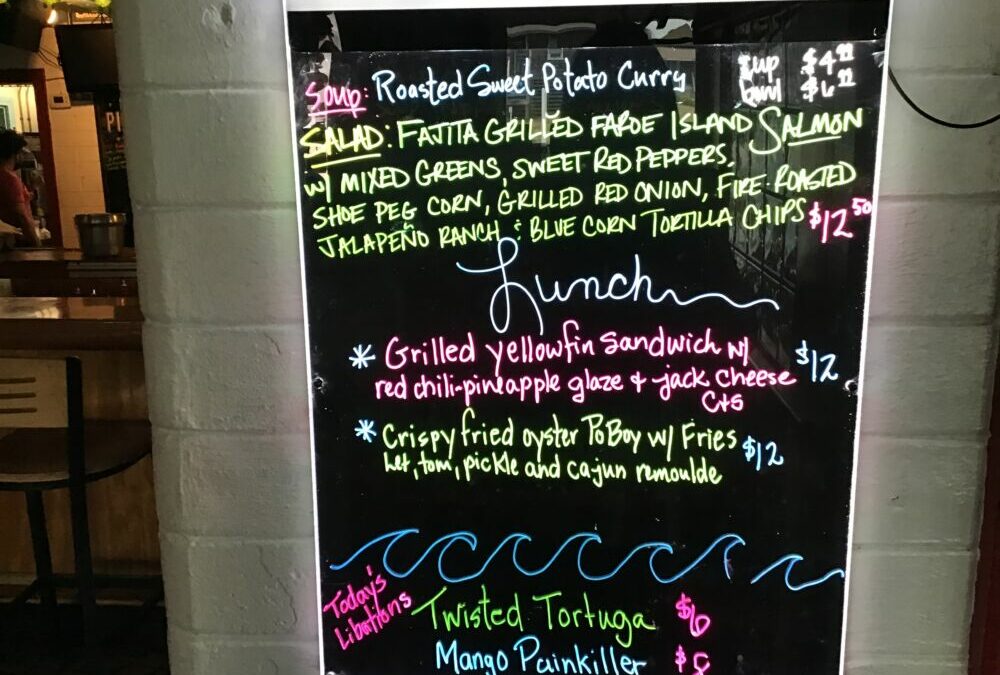 Soup: Roasted Sweet Potato Curry cup $4.99
bowl $6.99
SALAD: FAJITA GRILLED FAROE ISLAND SALMON
W/ MIXED GREENS, SWEET RED PEPPERS,
SHOE PEG CORN, GRILLED RED ONION, FIRE-ROASTED
JALAPEÑO RANCH & BLUE CORN TORTILLA CHIPS $12.50
Lunch
* Grilled yellowfin Sandwich w/ $12
red chili-pineapple glaze + jack cheese
C+S
* Crispy fried oyster PoBoy w/ Fries $12
Let, tom, pickle and cajun remoulde
Today's
Libations
Twisted Tortuga
Mango Painkiller